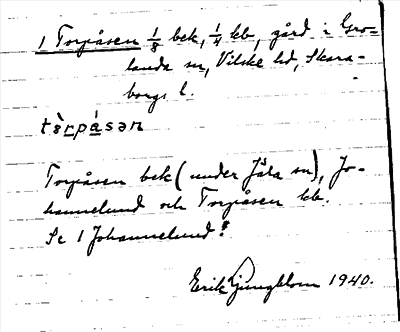 1 Torpåsen 1/8 bek, 1/4 kb, gård i Gro=
landa sn, Vilske hd, Skara-
borgs l.
tòrpásən
Torpåsen bek (under Jäla sn), Jo-
hannelund och Torpåsen kb.
Se 1 Johannelund!
Erik Ljungblom 1940.